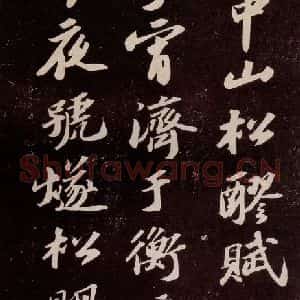 中山松醪賦
宵濟于衡
夜號燧松明
Shufawang.CN